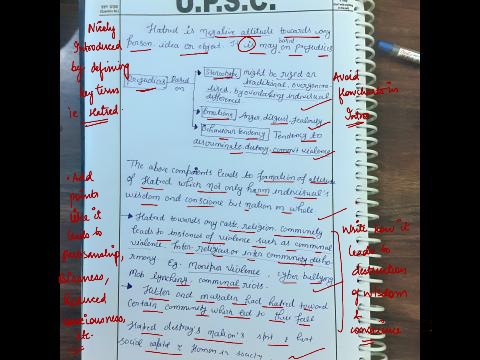 U.P.S.C.
Nicely
Introduced
by defining
key terms
ie Hatred.
Hatred is negative attitude towards any
person, idea or object. It may on prejudices
Prejudices Based on
Stereotype might be rigid or
traditional, overgeneralised
by overlooking individual
differences
Emotions Anger, disgust, Jealousy
Behaviour tendency Tendency to
discriminate, destroy, commit violence
Avoid
flowcharts in
Intro
The above components leads to formation of attitude
of Hatred which not only harm individual's
wisdom and conscience but nation as whole
→ Hatred towards any caste, religion, community
leads to instances of violence such as communal
violence. Inter-religious or inter community disharmony
Eg. Manipur violence, cyber bullying
Mob lynching, communal riots.
→ Hitler and Mussolini had hatred toward
certain community which led to their fall
Hatred destroy's nation's spirit &
social capital & Human in society
• Add
points
like it
leads to
Reduced
consciousness,
etc.
Write how it
leads to
destruction
of wisdom
&
conscience